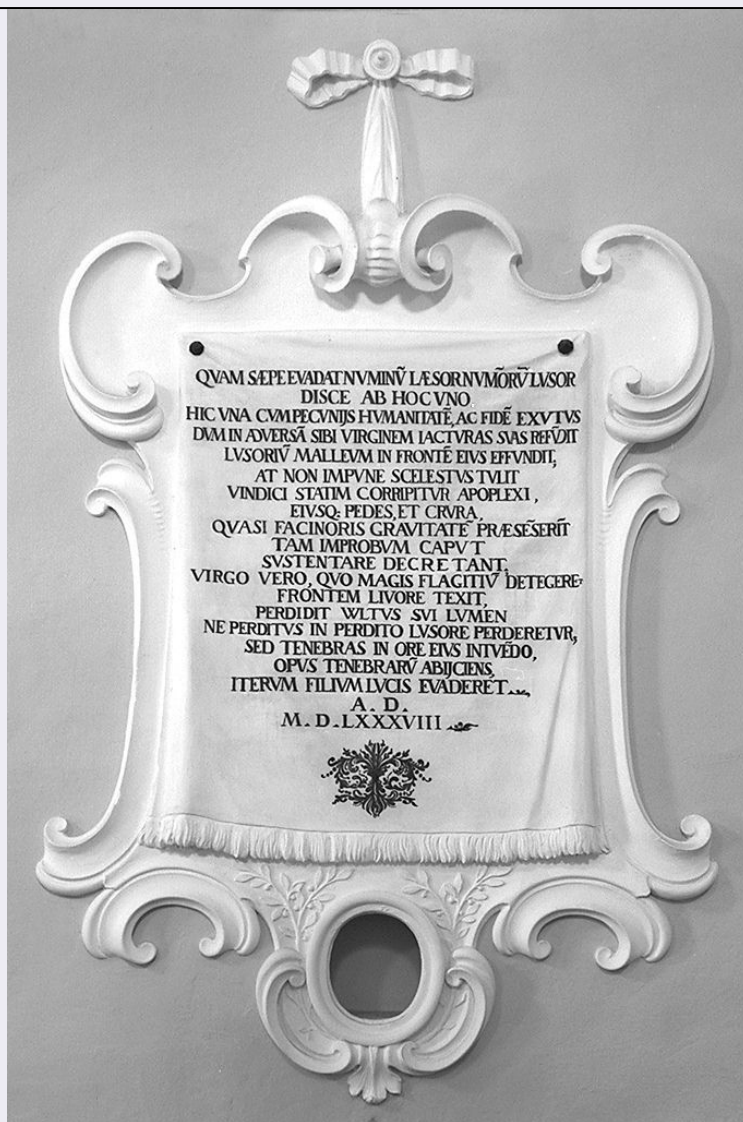 QVAM SÆPE EVADAT NVMINV̄ LÆSOR NVMŌRV̄ LVSOR
DISCE AB HOC VNO
HIC VNA CVM PECVNIJS HVMANITATĒ, AC FIDĒ EXVTVS
DVM IN ADVERSĀ SIBI VIRGINEM IACTVRAS SVAS REFV̄DIT
LVSORIV̄ MALLEVM IN FRONTĒ EIVS EFFVNDIT,
AT NON IMPVNE SCELESTVS TVLIT
VINDICI STATIM CORRIPITVR APOPLEXI,
EIVSQ: PEDES, ET CRVRA,
QVASI FACINORIS GRAVITATĒ PRÆSĒSERĪT
TAM IMPROBVM CAPVT
SVSTENTARE DECRETANT,
VIRGO VERO, QVO MAGIS FLAGITIV̄ DETEGERET
FRONTEM LIVORE TEXIT,
PERDIDIT VVLTVS SVI LVMEN
NE PERDITVS IN PERDITO LVSORE PERDERETVR,
SED TENEBRAS IN ORE EIVS INTVĒDO,
OPVS TENEBRARV̄ ABIJCIENS,
ITERVM FILIVM LVCIS EVADERET
A. D.
M. D. LXXXVIII